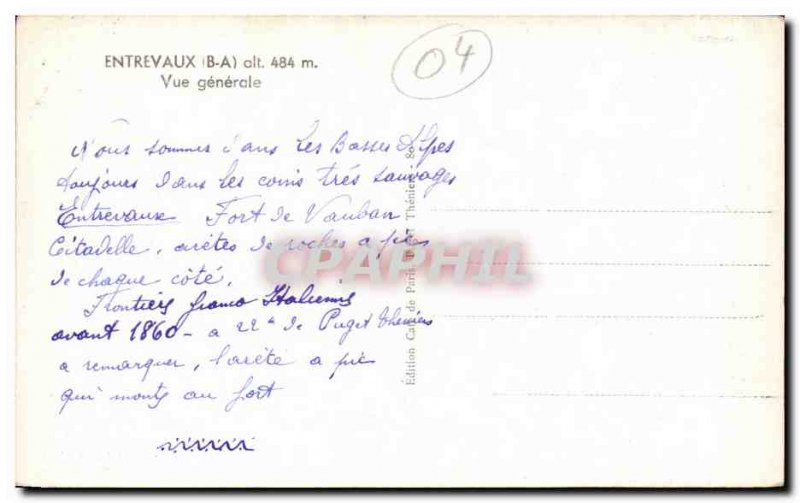 ENTREVAUX (B-A) alt. 484 m.
Vue générale
04
Nous sommes dans les Basses Alpes
toujours dans les coins très sauvages
Entrevaux Fort de Vauban
Citadelle, arêtes de roches a pic
de chaque côté.
Frontière franco Italienne
avant 1860 - a 22 de Puget Théniers
a remarquer, l'arête a pic
qui monte au fort
Édition Café de Paris
CPAPHIL